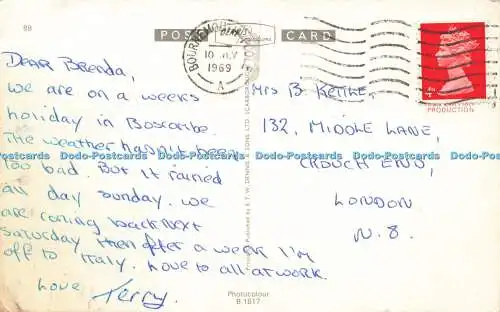 88
POST CARD
BOURNEMOUTH
1969
A
DEAR Brenda,
We are on a weeks
holiday in Boscombe.
The weather hasn't been
too bad. But it rained
all day sunday. We
are coming back next
saturday then after a week I'm
off to Italy. Love to all at work.
Love Terry.
MRS B
132, MIDDLE LANE,
CROUCH END,
LONDON
N.8.
PRODUCTION
Published by E.T.W. DENNIS & SONS LTD. SCARBOROUGH
Photocolour
B.1817
Dodo-Postcards Dodo-Postcards Dodo-Postcards Dodo-Postcards